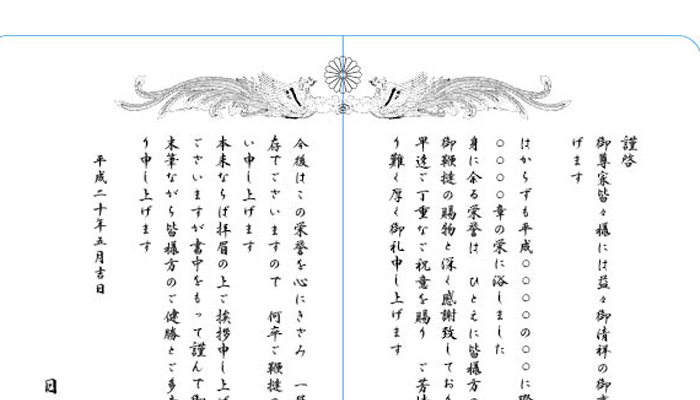 謹啓
御尊家皆々様には益々御清祥の御
げます
はからずも平成○○○○の○○に
○○○○章の栄に浴しました
身に余る栄誉は ひとえに皆様方の
御鞭撻の賜物と深く感謝致してお
早速ご丁重なご祝意を賜り ご芳
り難く厚く御礼申し上げます
今後はこの栄誉を心にきざみ 一
存でございますので 何卒ご鞭撻
い申し上げます
本来ならば拝眉の上ご挨拶申し上
ございますが書中をもって謹んで
末筆ながら皆様方のご健勝とご多
り申し上げます
平成二十年五月吉日